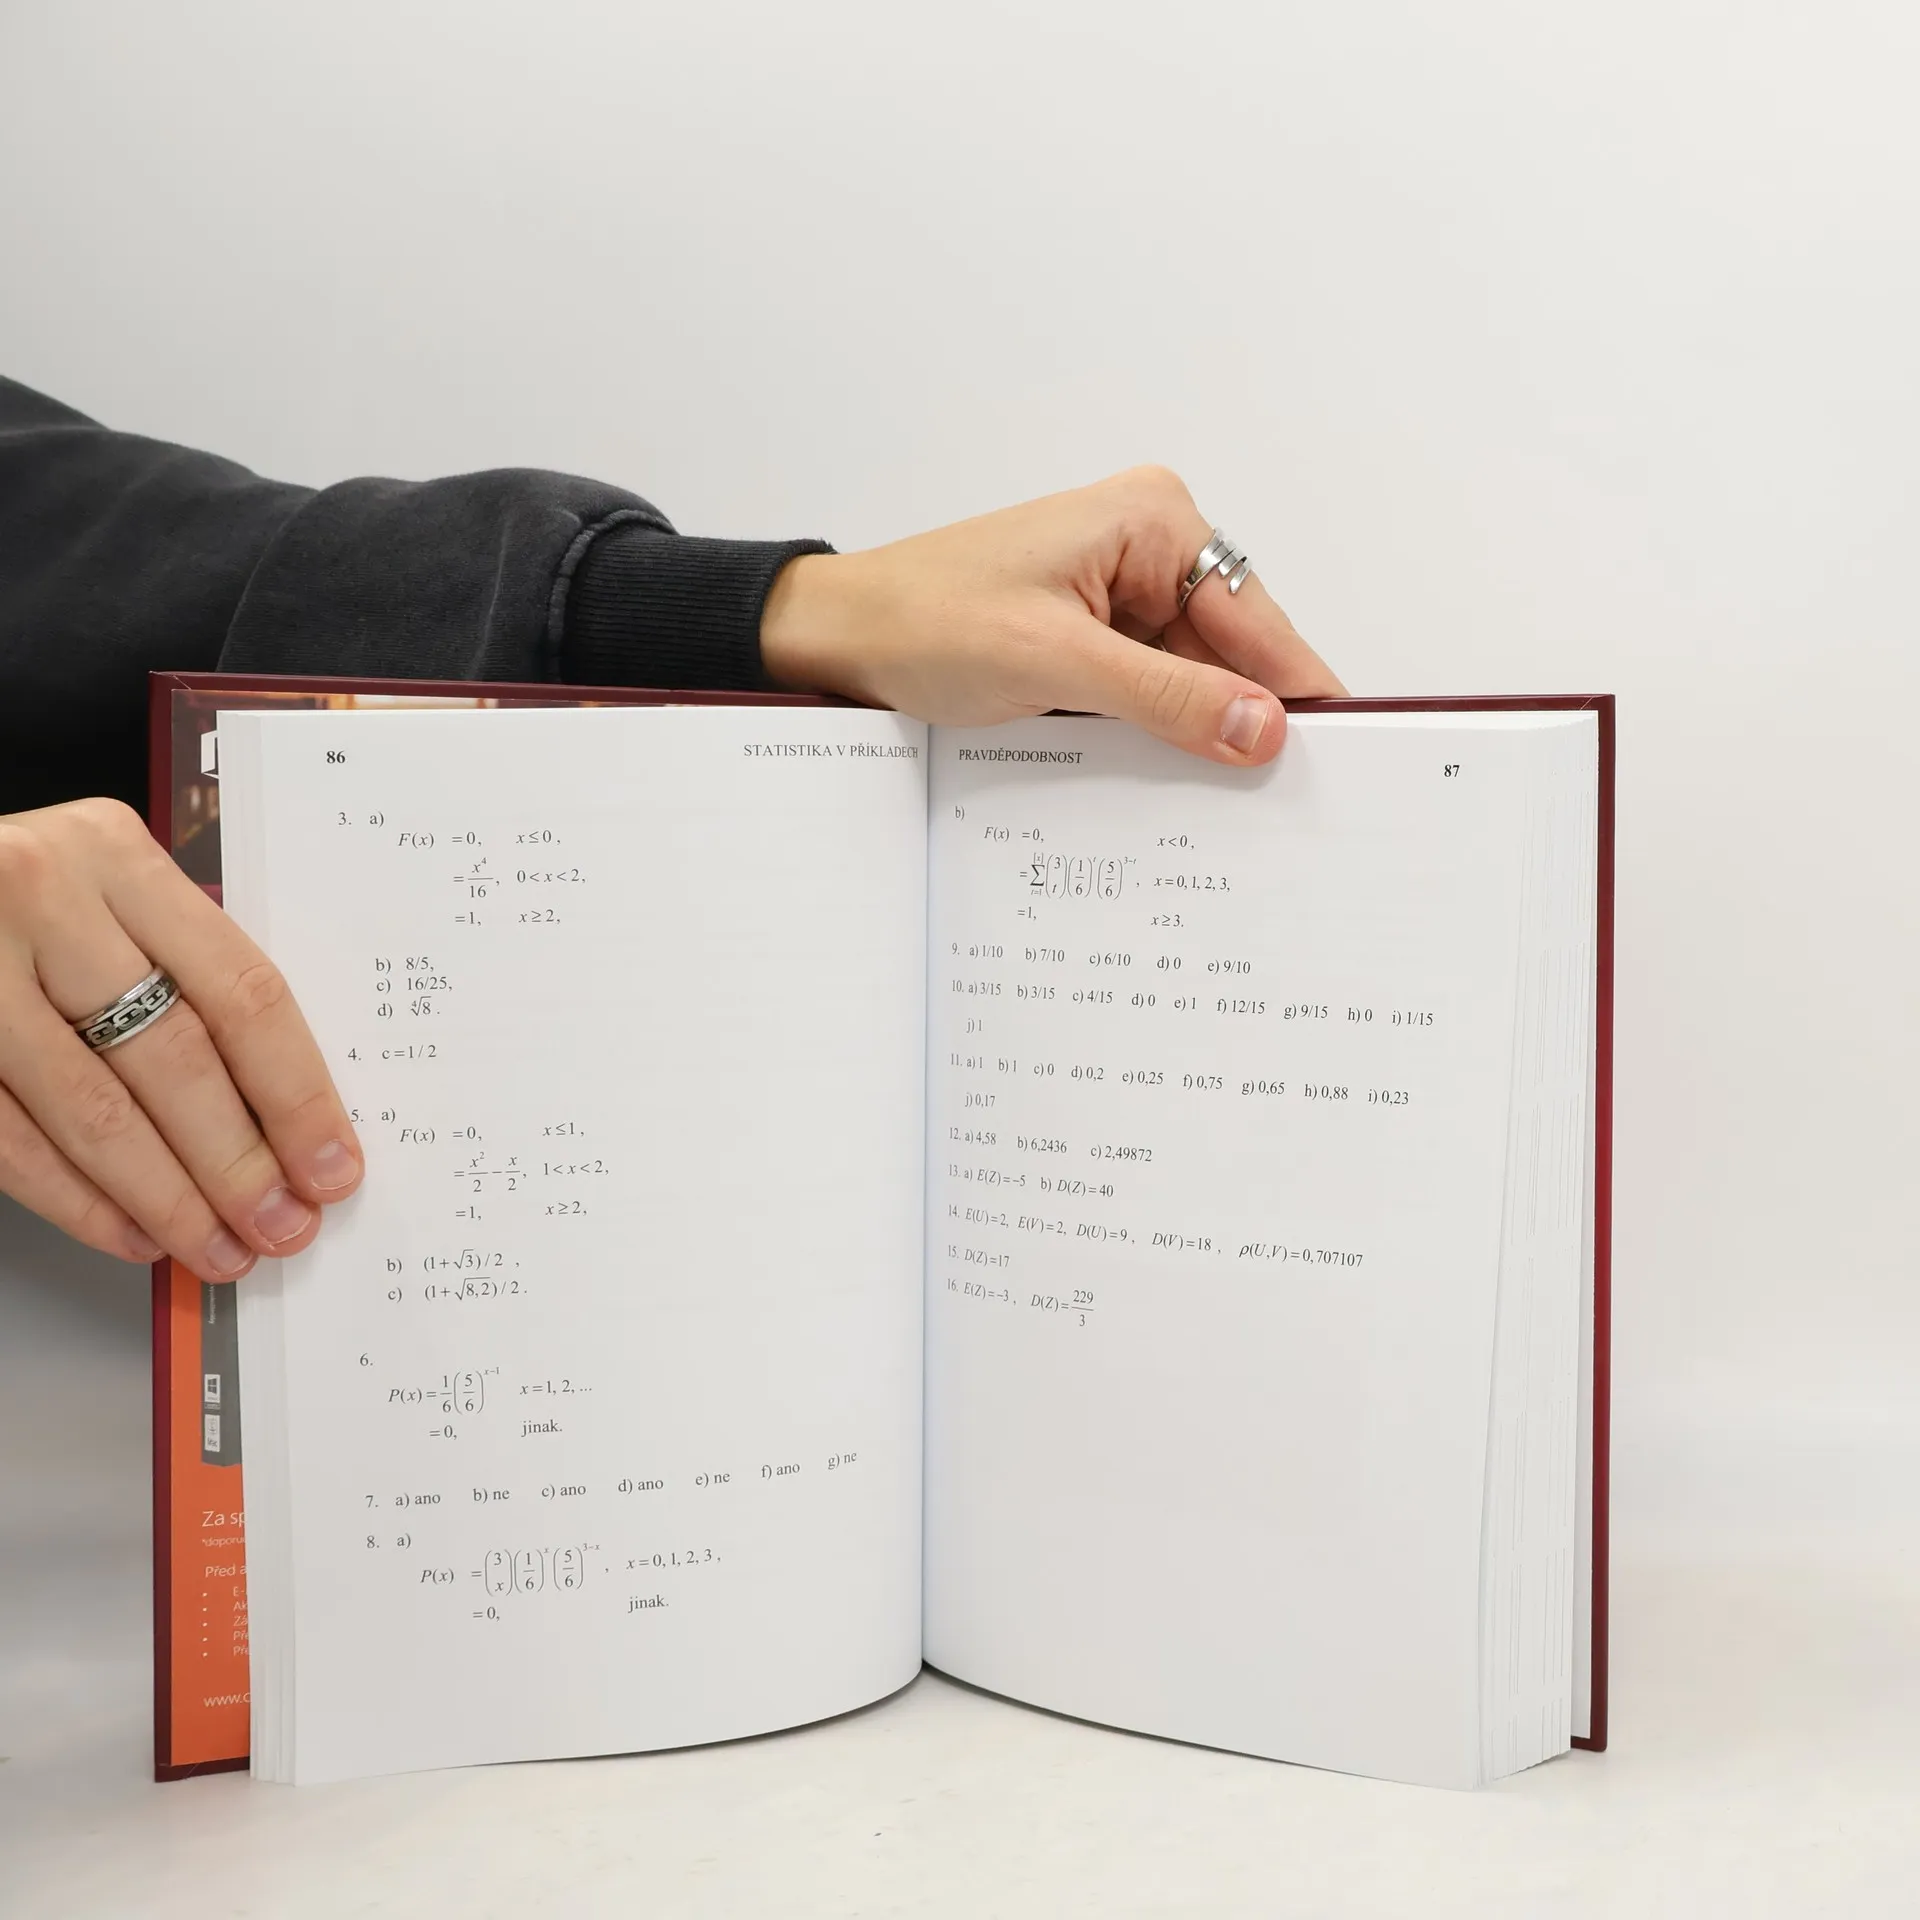 86
STATISTIKA V PŘÍKLADECH
3. a)
F(x) =0, x≤0,
=x⁴/16, 0<x<2,
=1, x≥2,
b) 8/5,
c) 16/25,
d) ∜8.
4. c=1/2
5. a)
F(x) =0, x≤1,
=x²/2−x/2, 1<x<2,
=1, x≥2,
b) (1+√3)/2 ,
c) (1+√8,2)/2.
6.
P(x)=1/6(5/6)^(x−1) x=1, 2, ...
=0, jinak.
7. a) ano b) ne c) ano d) ano e) ne f) ano g) ne
8. a)
P(x) =(3 x)(1/6)^x(5/6)^(3−x), x=0, 1, 2, 3,
=0, jinak.
PRAVDĚPODOBNOST
87
b)
F(x) =0, x<0,
=∑_(t=1)^[x](3 t)(1/6)^t(5/6)^(3−t), x=0, 1, 2, 3,
=1, x≥3.
9. a) 1/10 b) 7/10 c) 6/10 d) 0 e) 9/10
10. a) 3/15 b) 3/15 c) 4/15 d) 0 e) 1 f) 12/15 g) 9/15 h) 0 i) 1/15
j) 1
11. a) 1 b) 1 c) 0 d) 0,2 e) 0,25 f) 0,75 g) 0,65 h) 0,88 i) 0,23
j) 0,17
12. a) 4,58 b) 6,2436 c) 2,49872
13. a) E(Z)=−5 b) D(Z)=40
14. E(U)=2, E(V)=2, D(U)=9, D(V)=18, ρ(U,V)=0,707107
15. D(Z)=17
16. E(Z)=−3, D(Z)=229/3
Za sp
*doporu
Před a
• E-
• Ak
• Zá
• Pře
• Pře
www.c